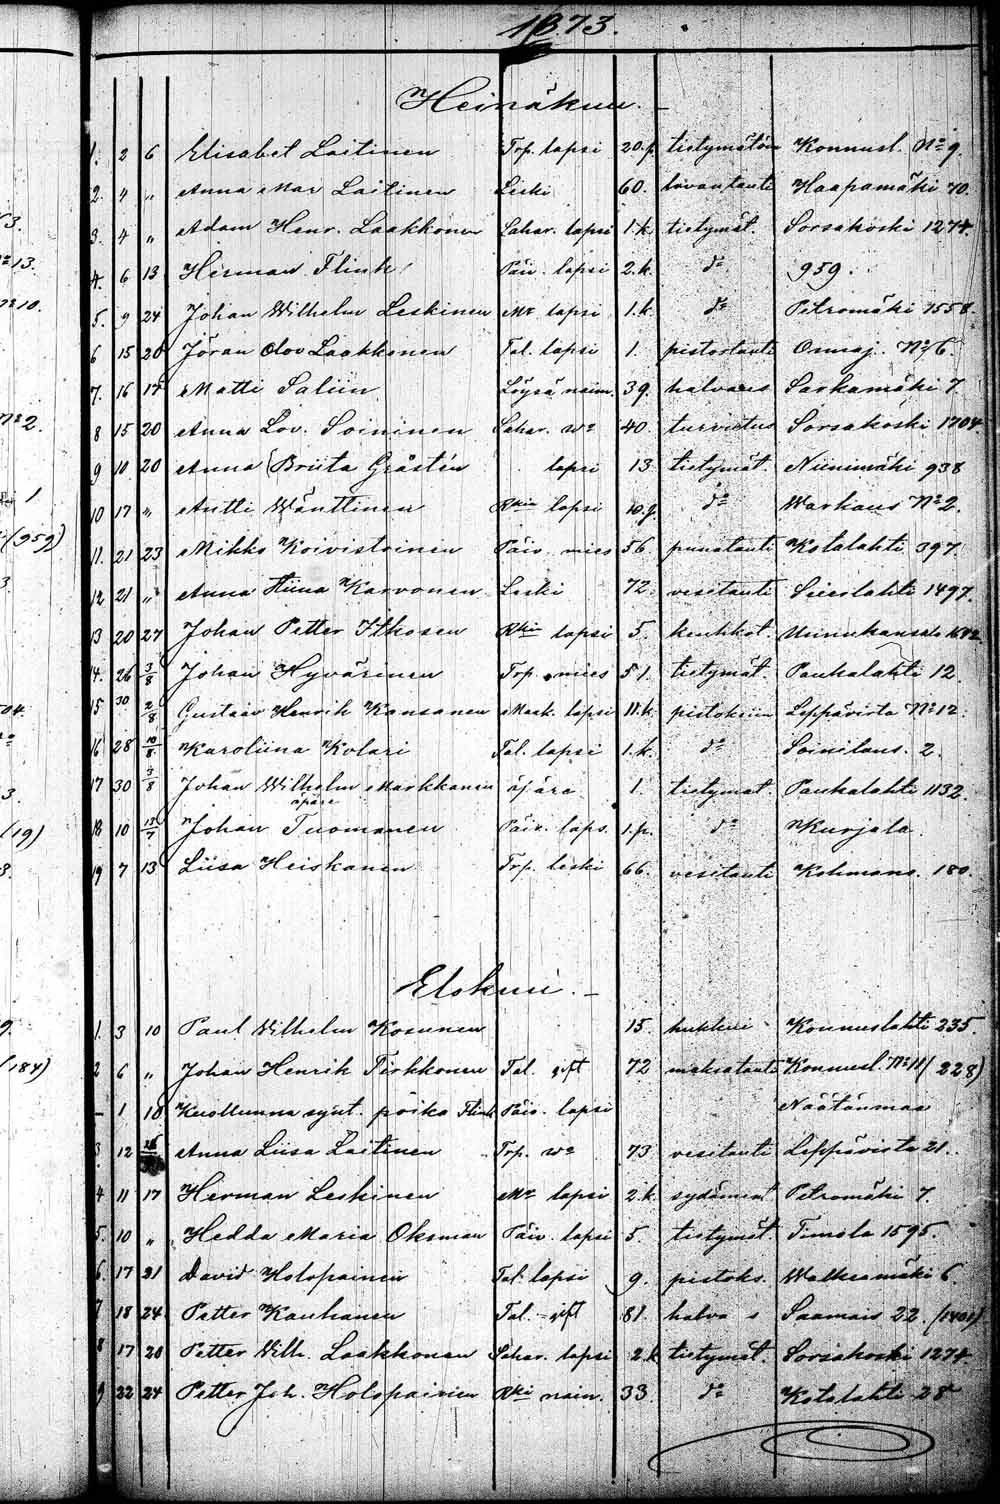 1873.
Heinäkuu.
1. 2 6 Elisabet Laitinen Trp. lapsi 20.p. tietymätöin Konnusl. No 9.
2. 4 " Anna Mar Laitinen Leski 60. Haapamäki 70.
3. 4 " Adam Henr. Laakkonen Sahar. lapsi 1.k. tietymät. Sorsakoski 1274.
4. 6 13 Herman Flink Päiv. lapsi 2.k. do 959.
5. 9 24 Johan Wilhelm Leskinen Mr lapsi 1.k. do Petromäki 1558.
6 15 20 Jöran Olov Laakkonen Tal. lapsi 1. pistostauti Osmaj. No 6.
7. 16 17 Matti Saliin Löysä naim. 39. halvaus Sarkamäki 7.
8 15 20 Anna Lov. Soininen Sahar. wo 40. turvotus Sorsakoski 1704
9 10 20 Anna Briita Gråstén lapsi 13 tietymät. Niinimäki 938
10 17 " Antti Wänttinen Rkin lapsi do Warkaus No 2.
11. 21 23 Mikko Koivistoinen Päiv. mies 56. punatauti Kotalahti 397
12 21 " Anna Stiina Karvonen Leski 72. vesitauti 1497.
13 20 27 Johan Petter Itkonen Rkin lapsi 5. keuhkot.
14. 26 3/8 Johan Hyvärinen Trp. mies 51. tietymät. Paukalahti 12.
15 30 2/8 Gustaav Henrik Kansanen Mask. lapsi 11.k. pistoksiin Leppävirta No 12.
16 28 10/8 Karoliina Kolari Tal. lapsi 1.k. do Soinilans. 2.
17 30 3/8 Johan Wilhelm Markkanen äpäre 1. tietymät. Paukalahti 1132.
äpäre
18 10 13/7 Johan Tuomanen Päiv. laps. 1.p. do Kurjala.
19 7 13 Liisa Heiskanen Trp. leski 66. vesitauti Kohmans. 180.
Elokuu.
1. 3 10 Paul Wilhelm Kosunen 15. hukkui Konnuslahti 235.
2 6 " Johan Henrik Tirkkonen Tal. gift 72 maksatauti Konnusl. No 11 (228)
– 1 10 Kuollunna synt. poika Flink Päiv. lapsi Näätänmaa
3. 12 Anna Liisa Laitinen Trp. wo 73 vesitauti Leppävirta 21.
4 11 17 Herman Leskinen Mr lapsi 2.k. Petromäki 7.
5. 10 " Hedda Maria Oksman Päiv. lapsi 5. tietymät. Timola 1595.
6. 17 21 David Holopainen Tal. lapsi 9. pistoks. 6.
7 18 24 Petter Kauhanen Tal. gift 81. halvaus Saamais 22. (1401)
8 17 20 Petter Wilh. Laakkonen Sahar. lapsi 2.k tietymät. Sorsakoski 1274.
9 22 24 Petter Joh. Holopainen Rki naim. 33. do Kotalahti 28